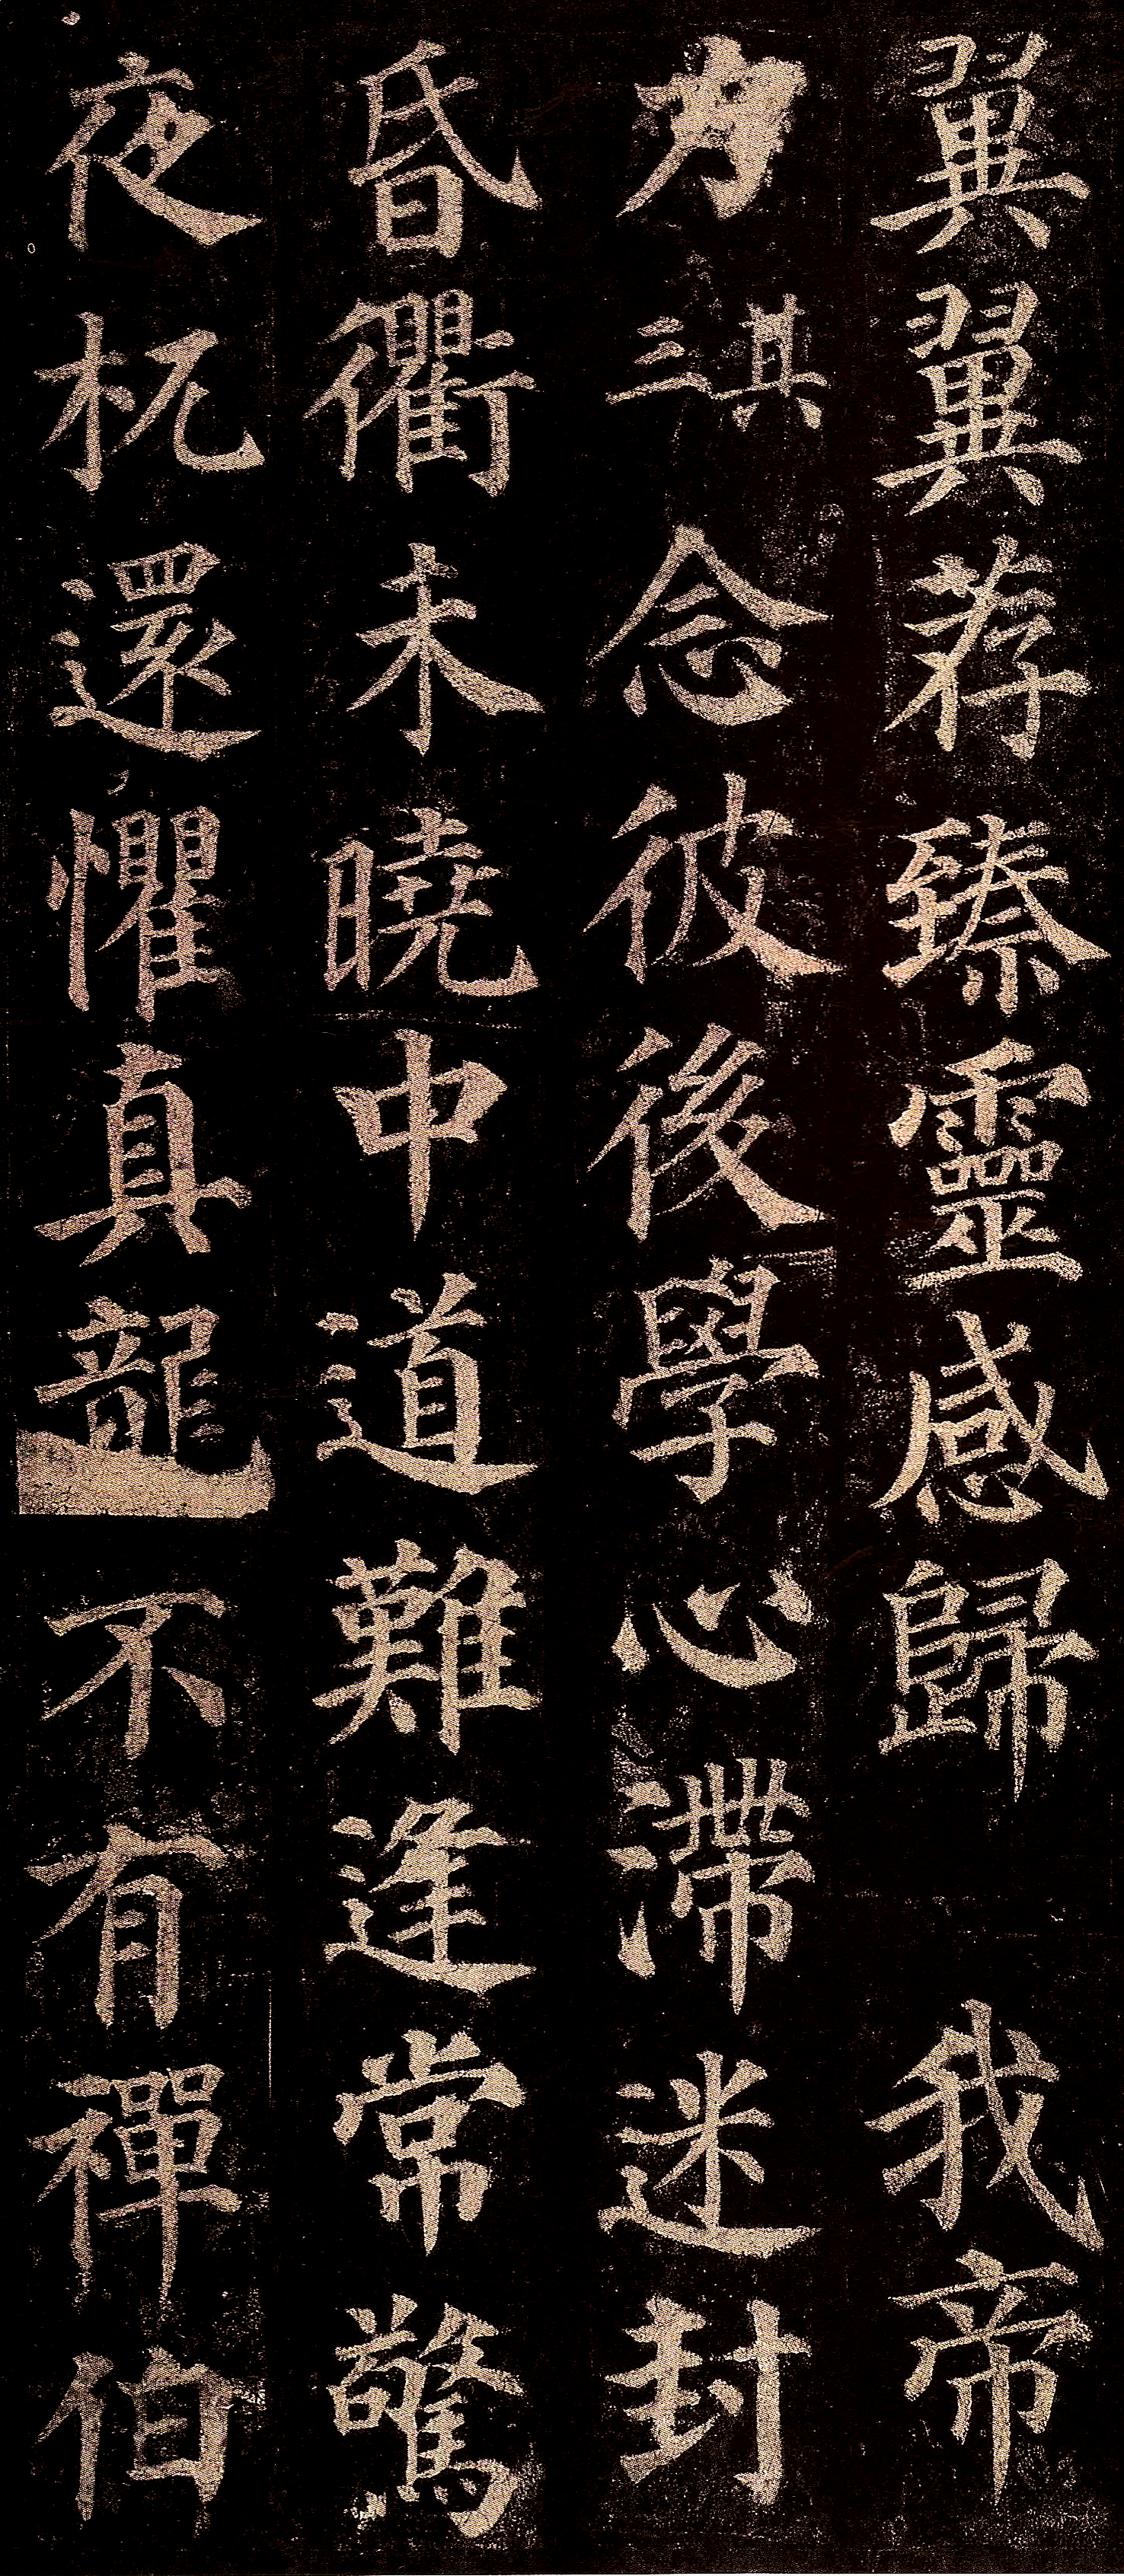 翼翼荐臻靈感歸 我帝
力 其三 念彼後學心滯迷封
昏衢未曉中道難逢常驚
夜杌還懼真龍不有禪伯